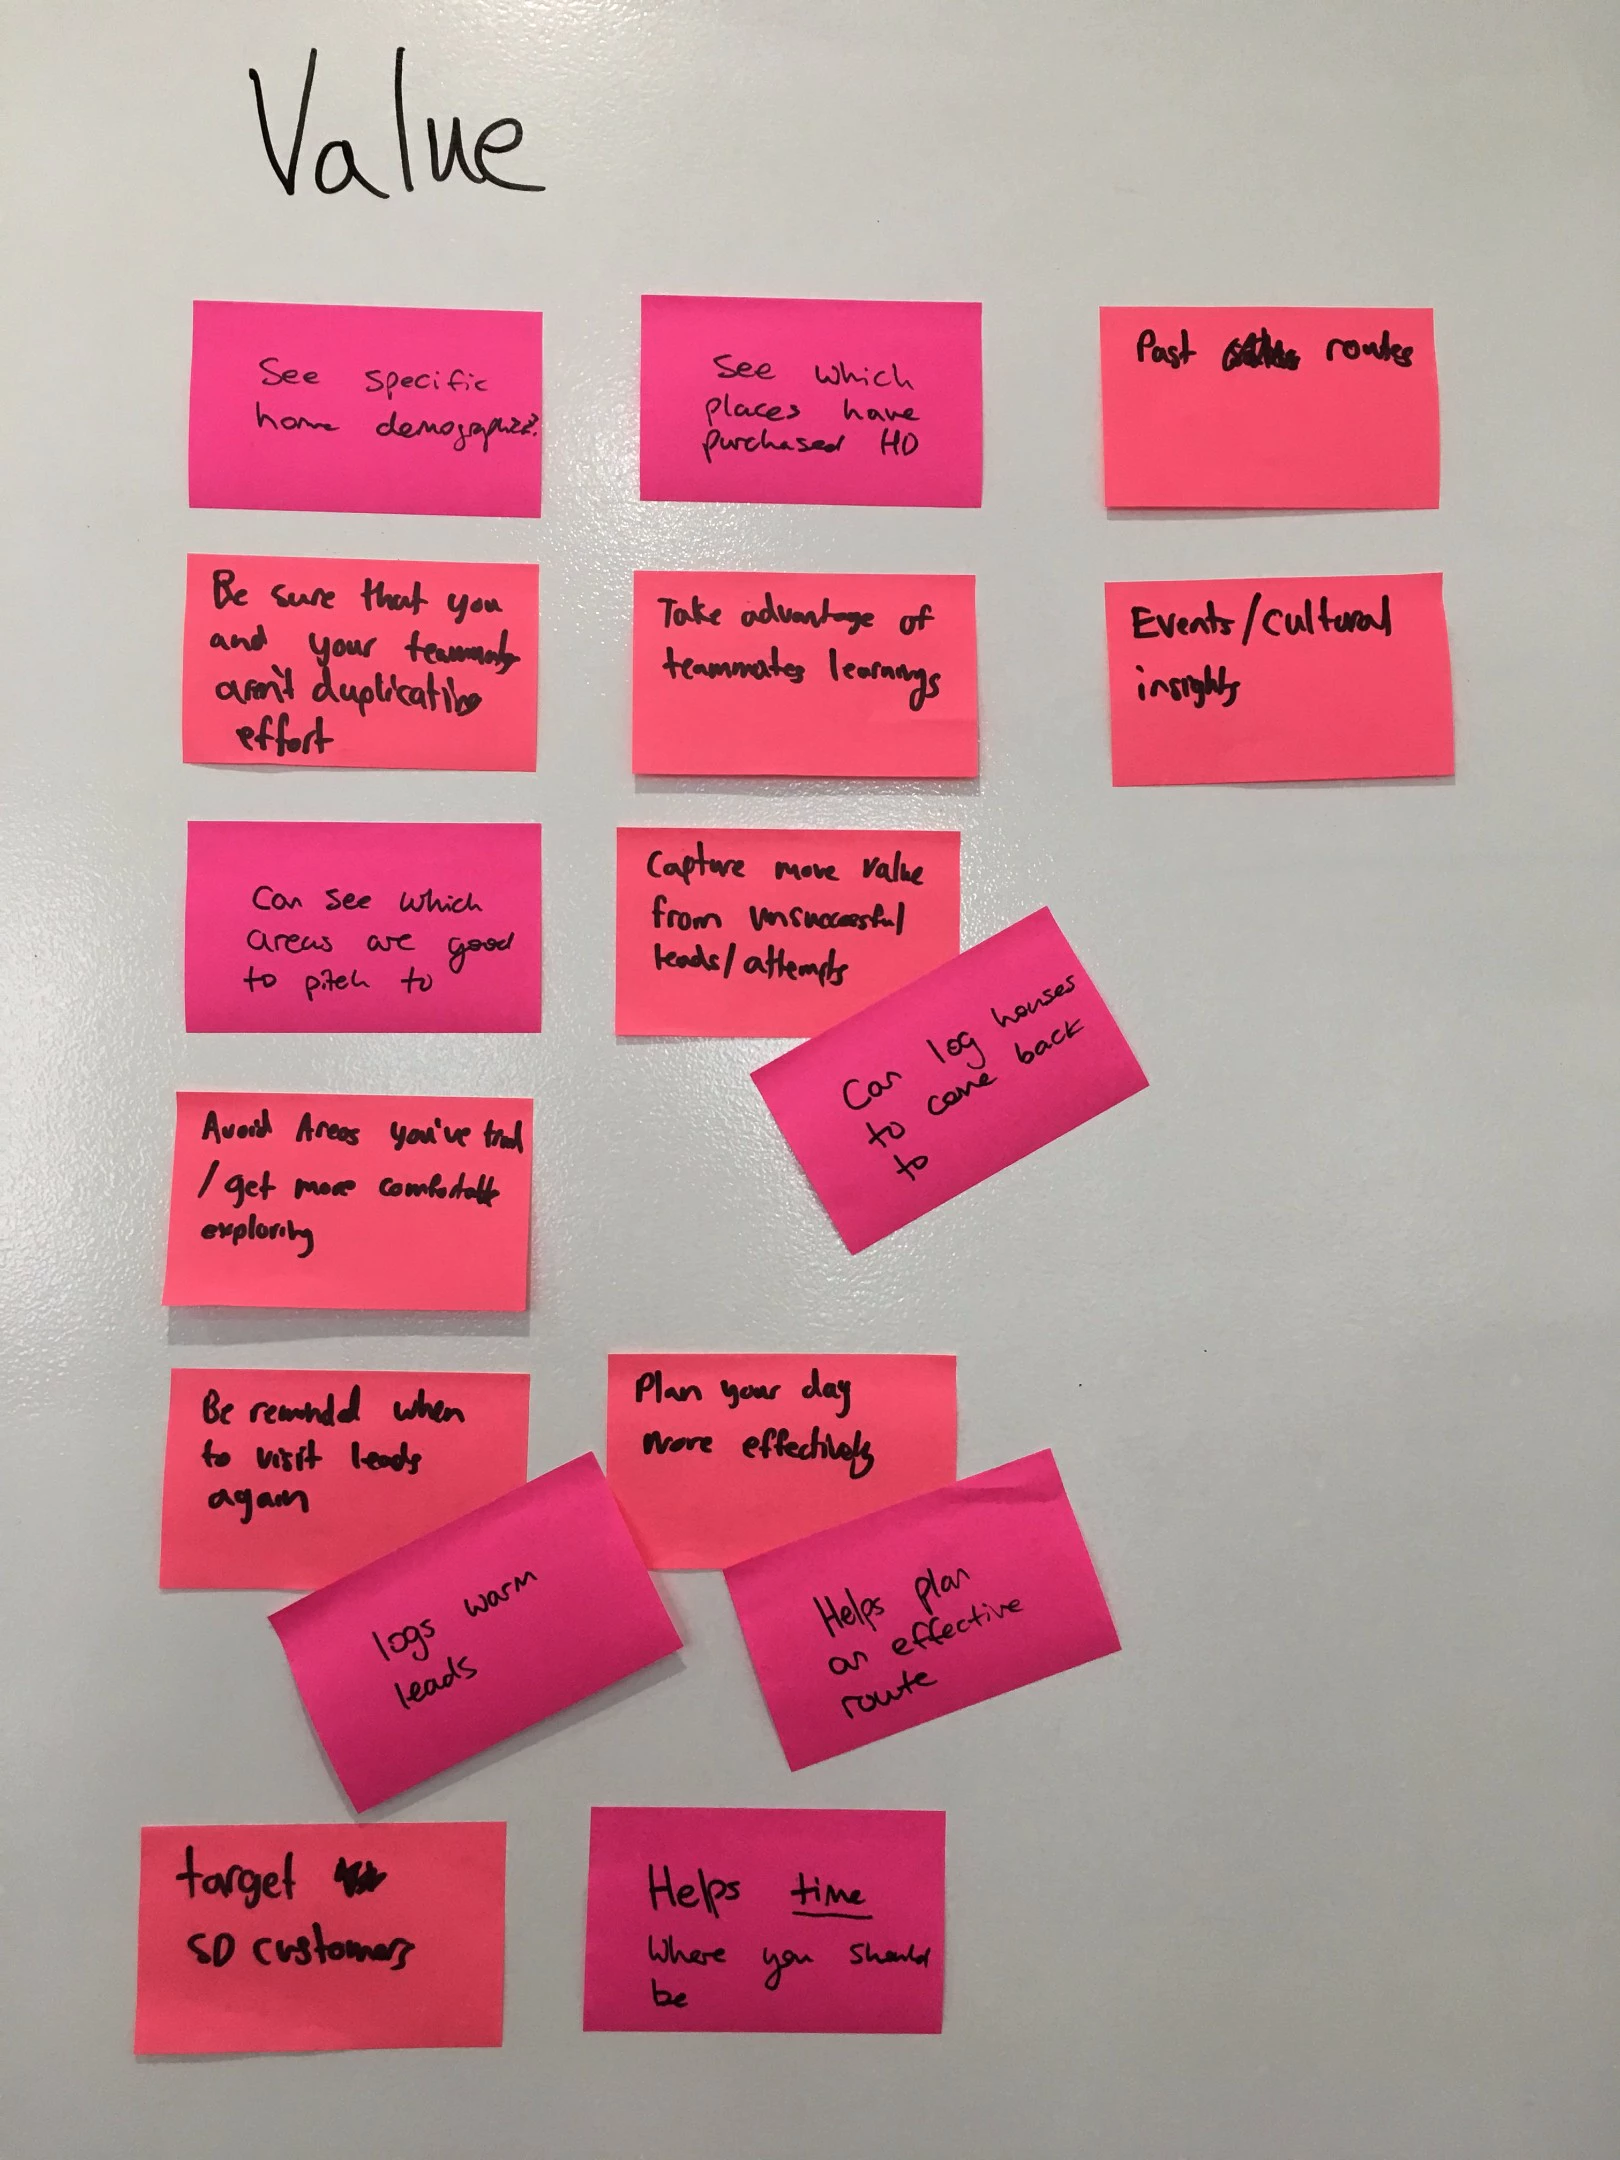 Value
See specific
home demographics?
See which
places have
purchased HD
Past routes
Be sure that you
and your teammates
aren't duplicating
effort
Take advantage of
teammates learnings
Events/cultural
insights
Can see which
areas are good
to pitch to
Capture more value
from unsuccessful
leads/attempts
Can log houses
to come back
to
Avoid Areas you've tried
/get more comfortable
exploring
Be reminded when
to visit leads
again
Plan your day
more effectively
logs warm
leads
Helps plan
an effective
route
target
SD customers
Helps time
where you should
be